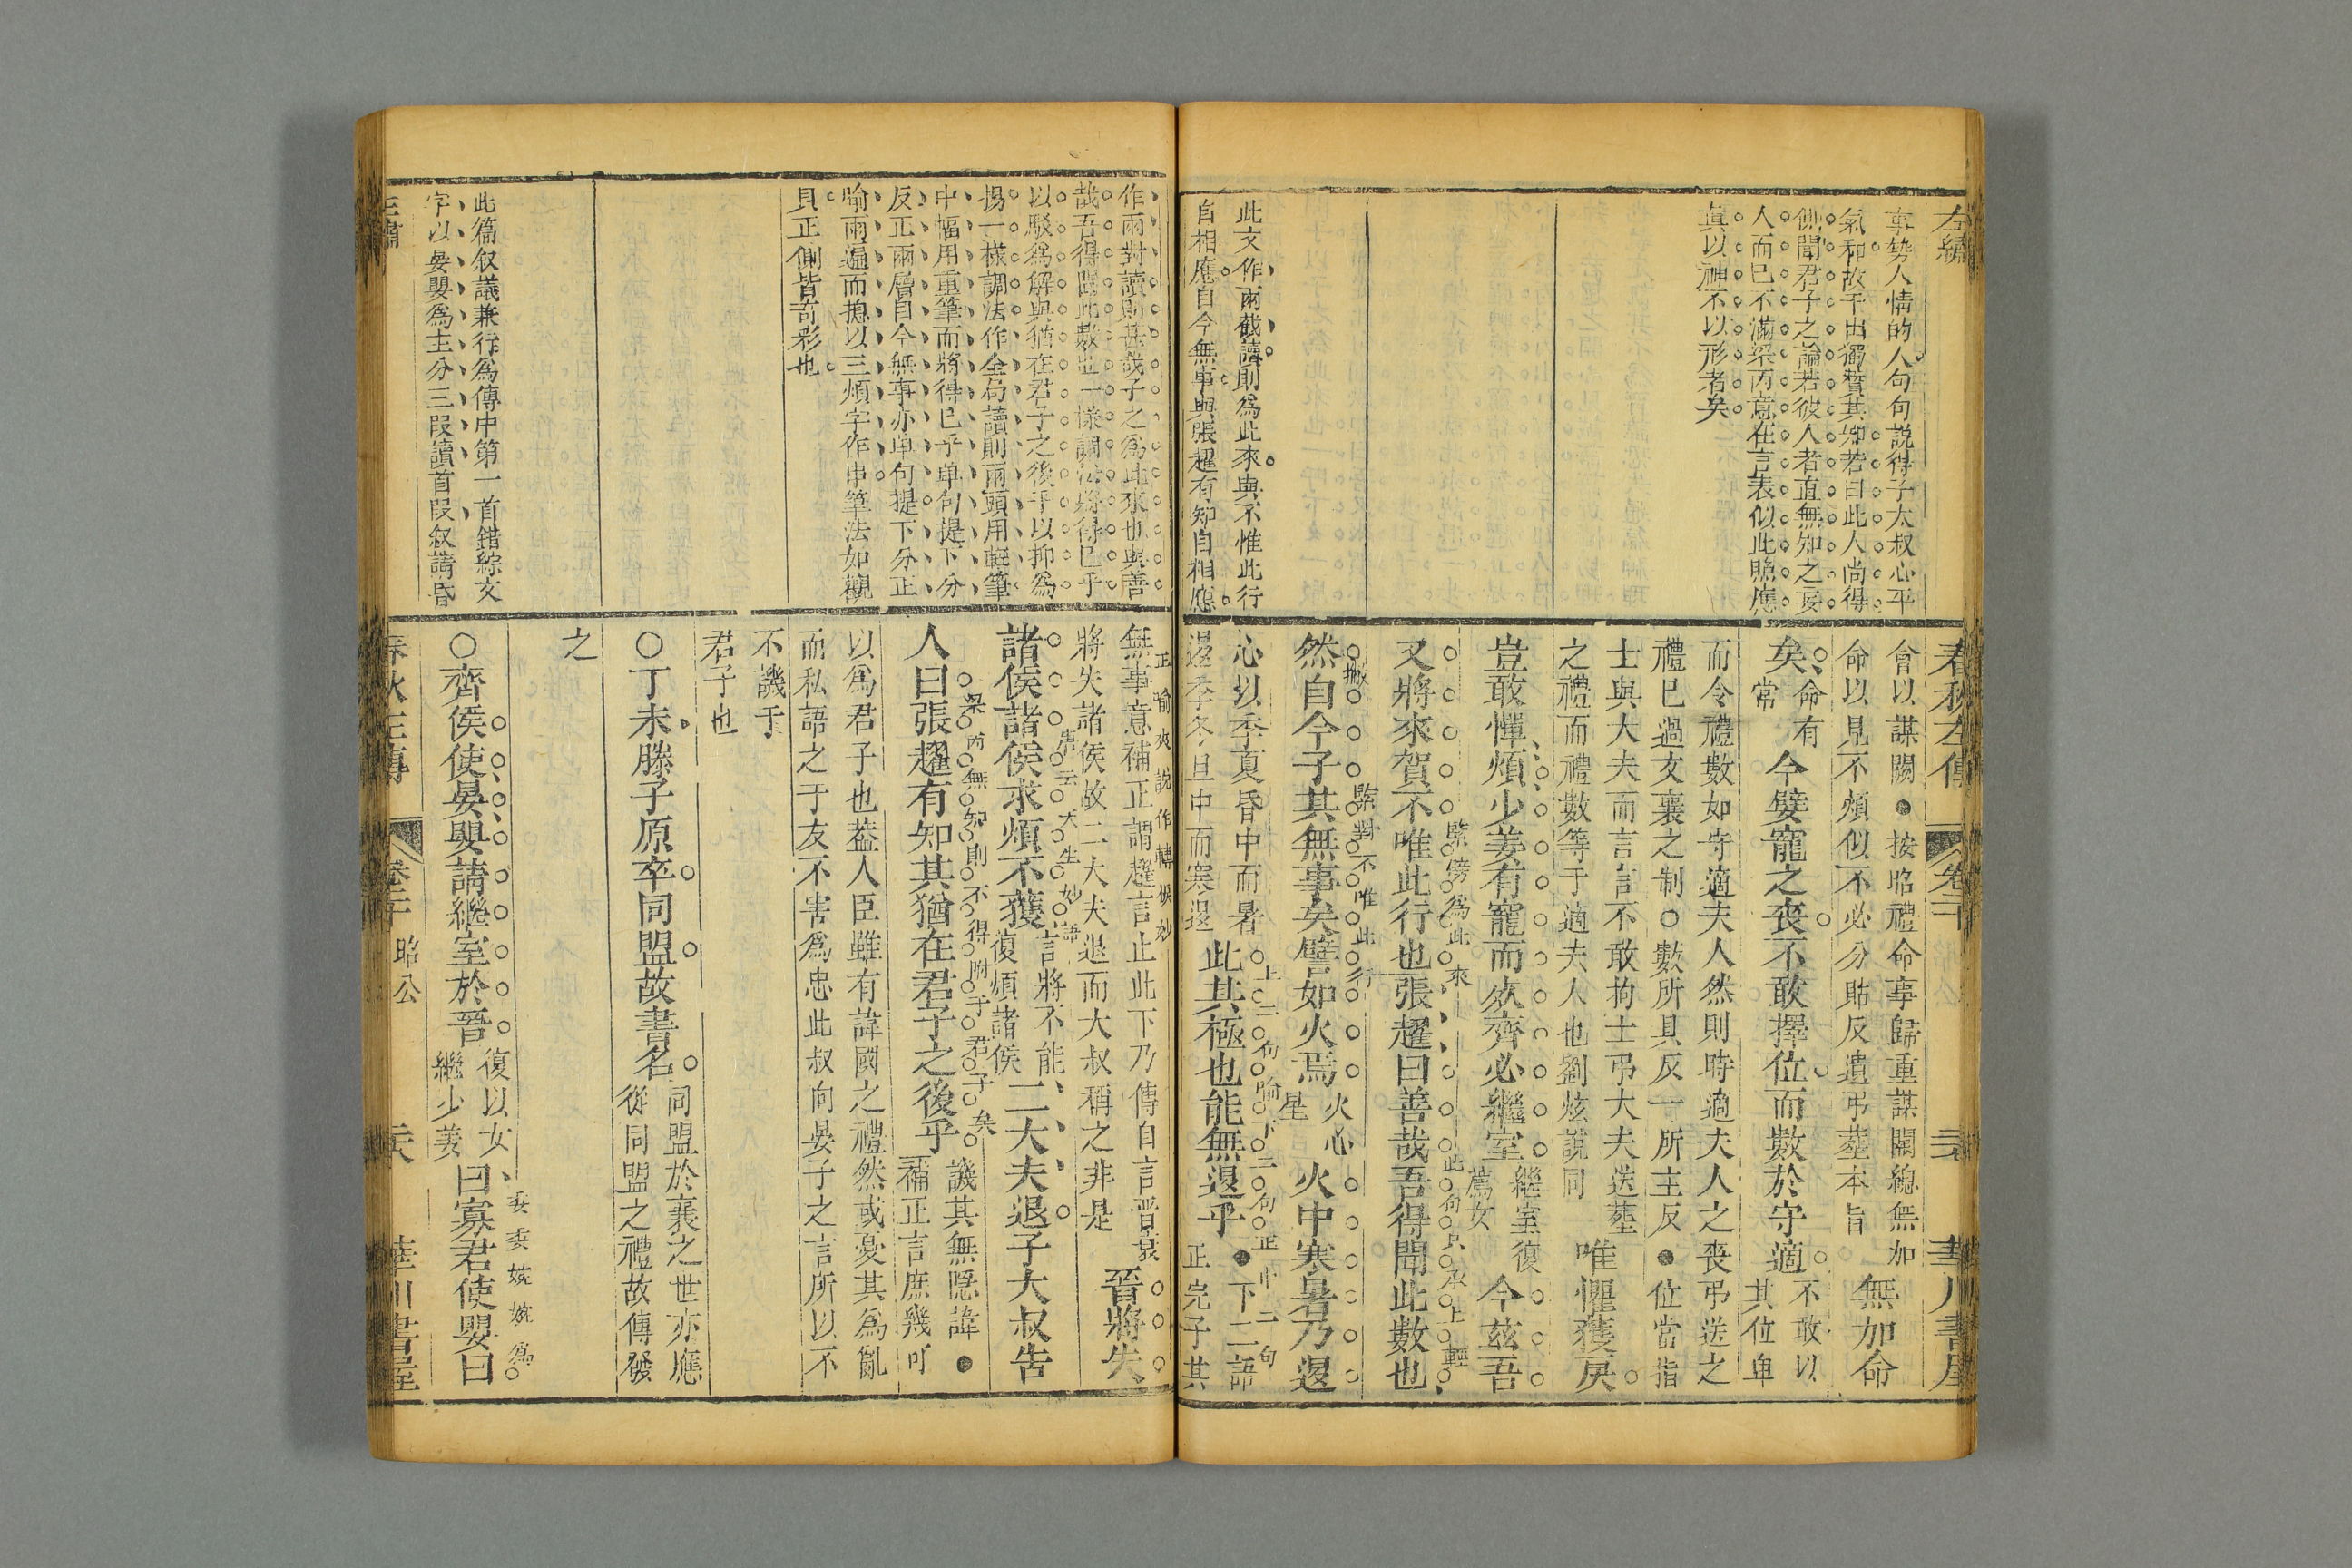 左繡
事勢人情的人句句説得子大叔心平
氣和故干出獨贊其知若曰此人尚得
側聞君子之論若彼人者直無知之妄
人而已不滿梁丙意在言表似此照應
眞以神不以形者矣
此文作兩截讀則爲此來與不惟此行
自相應自今無事與張趯有知自相應
春秋左傳
卷二十
華川書屋
會以謀闕●按昭禮命事歸重謀闕總無加
命以見不煩似不必分貼反遺弔葬本旨
無加命
矣
命有
常
今嬖寵之喪不敢擇位而數於守適
不敢以
其位卑
而令禮數如守適夫人然則時適夫人之喪弔送之
禮已過文襄之制○數所具反一所主反●位當指
士與大夫而言言不敢拘士弔大夫送葬
之禮而禮數等于適夫人也劉炫説同
唯懼獲戾
豈敢憚煩少姜有寵而欱齊必繼室
繼室復
薦女
今茲吾
又將來賀不唯此行也張趯曰善哉吾得聞此數也
緊傍爲此來
此句只承上輕
然自今子其無事矣譬如火焉
火心
星
火中寒暑乃退
撇
緊對不唯此行
心以季夏昏中而暑
退季冬旦中而寒退
此其極也能無退乎
●下二語
正完子其
上二句喻下二句正中二句
作兩對讀則甚哉子之爲此來也與善
哉吾得聞此數也一様調法將得已乎
以駁爲解與猶在君子之後乎以抑爲
揚一様調法作全局讀則兩頭用輕筆
中幅用重筆而將得已乎單句提下分
反正兩層自今無事亦單句提下分正
喻兩遍而揔以三煩字作串筆法如觀
貝正側皆奇彩也
無事意補正謂趯言止此下乃傳自言晋衰
將失諸侯故二大夫退而大叔稱之非是
正喻夾説作轉捩妙
晉將失
諸侯諸侯求煩不獲
言將不能
復煩諸侯
二大夫退子大叔告
唐云大生妙語
人曰張趯有知其猶在君子之後乎
譏其無隱諱●
補正言庶幾可
梁丙無知則不得附于君子矣
以爲君子也葢人臣雖有諱國之禮然或憂其爲亂
而私語之于友不害爲忠此叔向晏子之言所以不
不譏于
君子也
○丁未滕子原卒同盟故書名
同盟於襄之世亦應
從同盟之禮故傳發
之
此篇叙議兼行爲傳中第一首錯綜文
字以晏嬰爲主分三段讀首段叙請昏
○齊侯使晏嬰請繼室於晉
復以女
繼少姜
曰寡君使嬰曰
委委婉婉爲
左繡
春秋左傳
卷二十
昭公
華川書屋